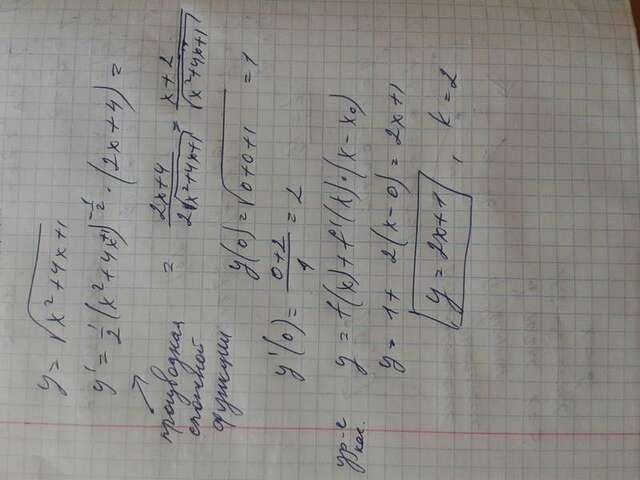 y = √(x²+4x+1)
y' = 1/2 (x²+4x+1)^(-1/2) · (2x+4) =
производная сложной функции
= (2x+4)/(2√(x²+4x+1)) = (x+2)/√(x²+4x+1)
y(0) = √(0+0+1) = 1
y'(0) = (0+2)/1 = 2
ур-е кас. y = f(x) + f'(x)·(x-x₀)
y = 1 + 2(x-0) = 2x+1
y = 2x+1, k = 2